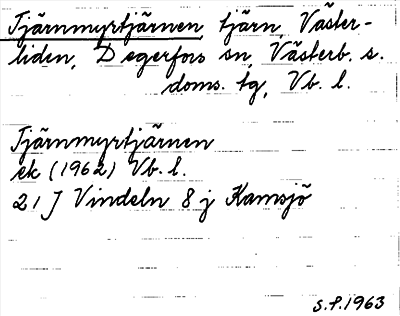 Tjärnmyrtjärnen tjärn, Väster-
liden, Degerfors sn, Västerb. s.
doms. tg, Vb. l.
Tjärnmyrtjärnen
ek (1962) Vb. l.
21 J Vindeln 8 j Kamsjö
S.P. 1963